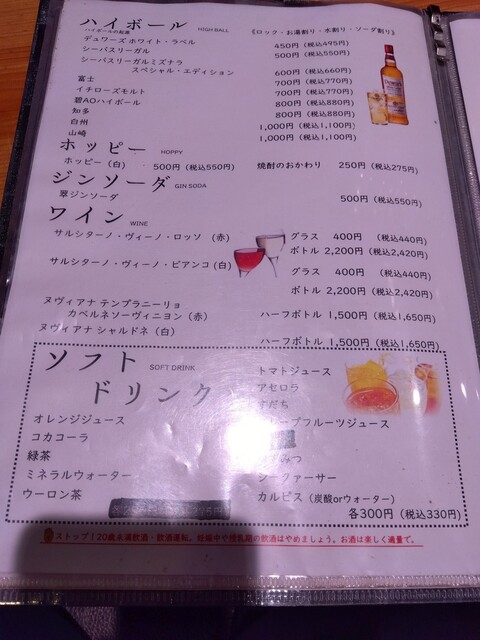 ハイボール HIGH BALL 《ロック・お湯割り・水割り・ソーダ割り》
ハイボールの起源
デュワーズ ホワイト・ラベル 450円(税込495円)
シーバスリーガル 500円(税込550円)
シーバスリーガルミズナラ
スペシャル・エディション 600円(税込660円)
富士 700円(税込770円)
イチローズモルト 700円(税込770円)
碧AOハイボール 800円(税込880円)
知多 800円(税込880円)
白州 1,000円(税込1,100円)
山崎 1,000円(税込1,100円)
ホッピー HOPPY
ホッピー(白) 500円(税込550円) 焼酎のおかわり 250円(税込275円)
ジンソーダ GIN SODA
翠ジンソーダ 500円(税込550円)
ワイン WINE
サルシターノ・ヴィーノ・ロッソ (赤) グラス 400円 (税込440円)
ボトル 2,200円(税込2,420円)
サルシターノ・ヴィーノ・ビアンコ(白) グラス 400円 (税込440円)
ボトル 2,200円(税込2,420円)
ヌヴィアナ テンプラニーリョ
カベルネソーヴィニヨン(赤) ハーフボトル 1,500円(税込1,650円)
ヌヴィアナ シャルドネ(白) ハーフボトル 1,500円(税込1,650円)
ソフト SOFT DRINK
ドリンク
オレンジジュース
コカコーラ
緑茶
ミネラルウォーター
ウーロン茶
トマトジュース
アセロラ
すだち
ープフルーツジュース
みつ
ークァーサー
カルピス(炭酸orウォーター)
各300円(税込330円)
ストップ!20歳未満飲酒・飲酒運転。妊娠中や授乳期の飲酒はやめましょう。お酒は楽しく適量で。